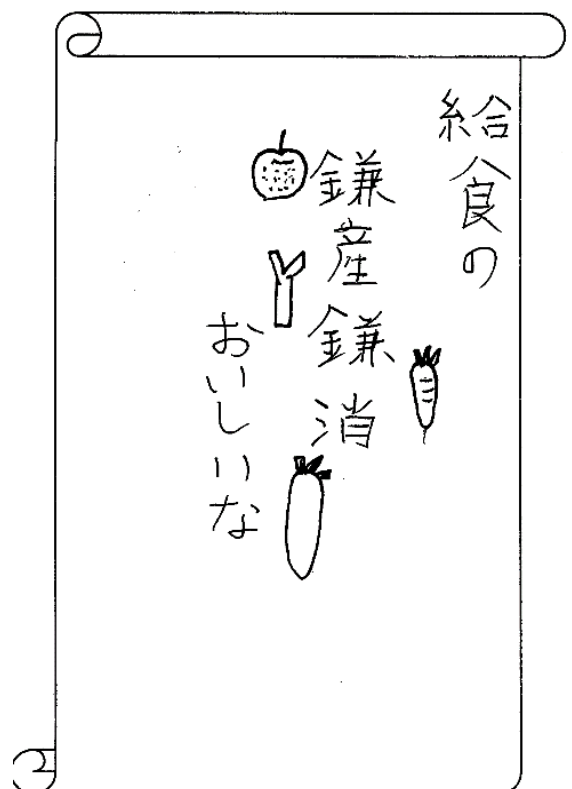 給食の
鎌産鎌消
おいしいな